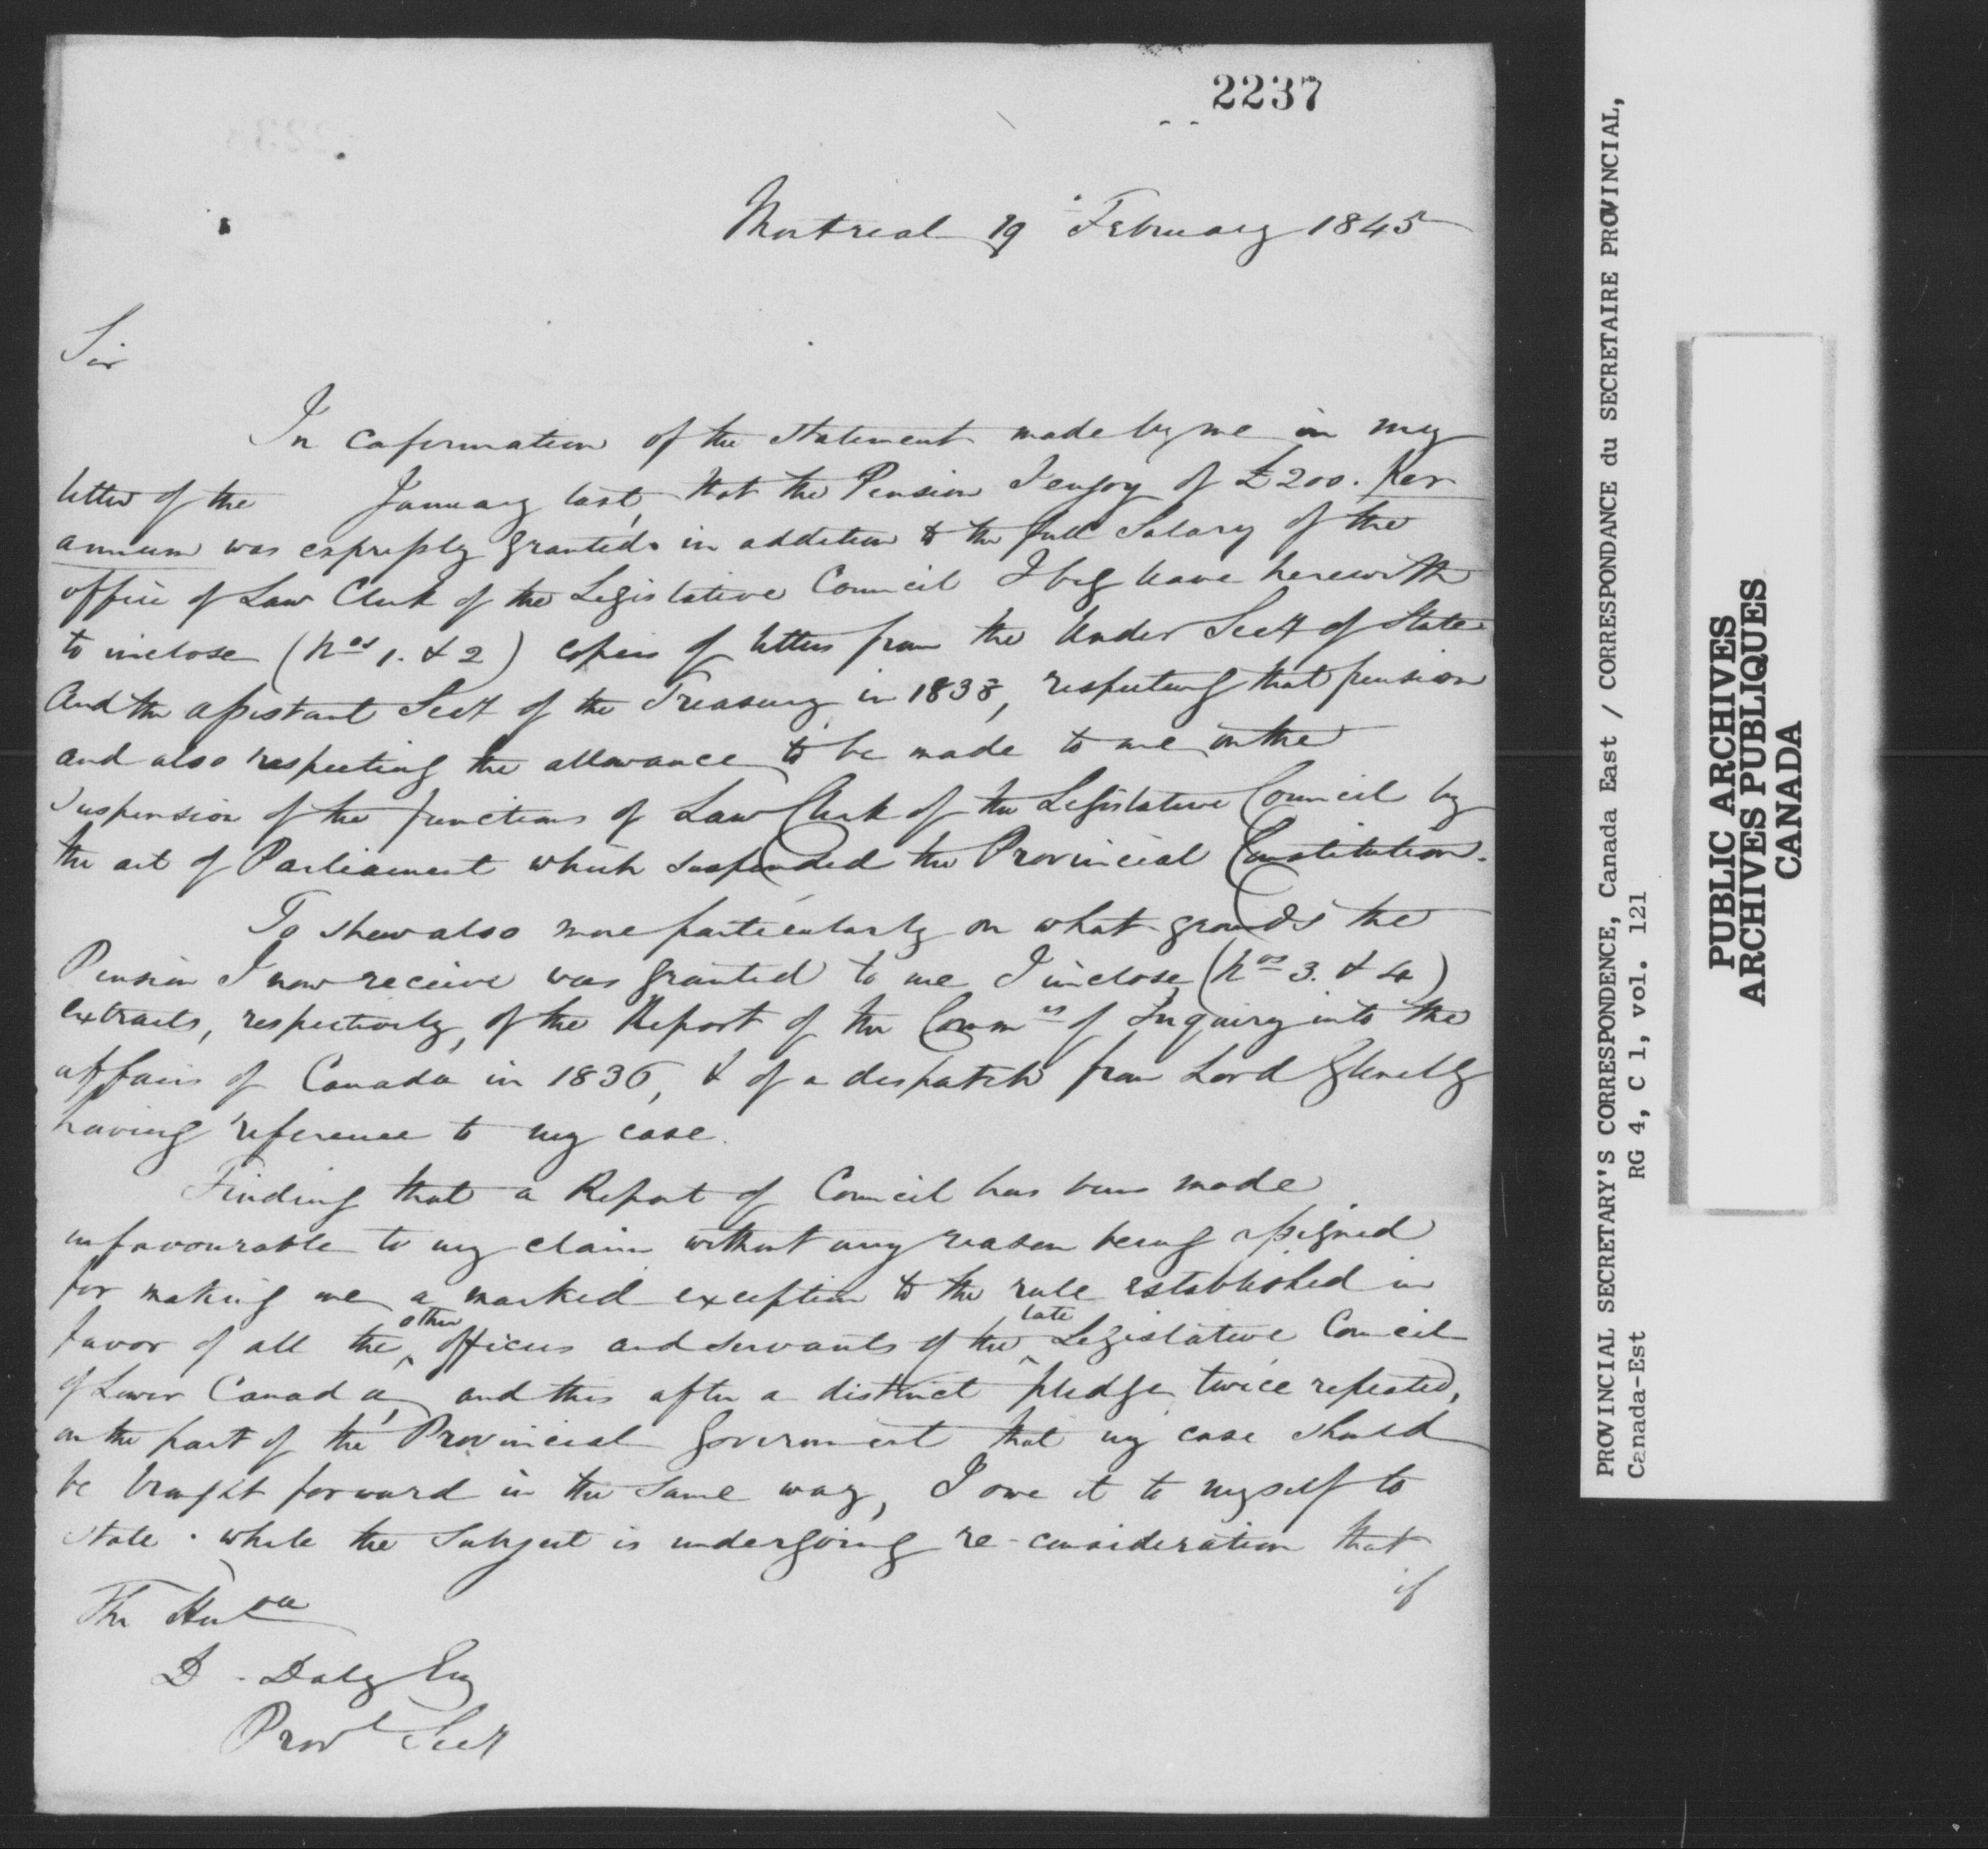 2237
Montreal 19 February 1845
Sir
In confirmation of the statement made by me in my
letter of the January last, that the Pension I enjoy of £200. per
annum was expressly granted in addition to the full Salary of the
office of Law Clerk of the Legislative Council I beg leave herewith
to inclose (Nos 1. & 2) copies of letters from the Under Secy of State
and the assistant Secy of the Treasury in 1838, respecting that pension
and also respecting the allowance to be made to me on the
suspension of the functions of Law Clerk of the Legislative Council by
the act of Parliament which suspended the Provincial Constitution.
To shew also more particularly on what grounds the
Pension I now receive was granted to me I inclose (Nos 3. & 4)
extracts, respectively, of the Report of the Commrs of Inquiry into the
affairs of Canada in 1836, & of a despatch from Lord Glenelg
having reference to my case.
Finding that a Report of Council has been made
unfavourable to my claim without any reason being assigned
for making me a marked exception to the rule established in
favor of all the other officers and servants of the late Legislative Council
of Lower Canada, and this after a distinct pledge, twice repeated,
on the part of the Provincial Government that my case should
be brought forward in the same way, I owe it to myself to
state while the subject is undergoing re-consideration that
if
The Honble
D. Daly Esq
Provl Secy
PROVINCIAL SECRETARY'S CORRESPONDENCE, Canada East / CORRESPONDANCE du SECRETAIRE PROVINCIAL,
Canada-Est RG 4, C 1, vol. 121
PUBLIC ARCHIVES
ARCHIVES PUBLIQUES
CANADA